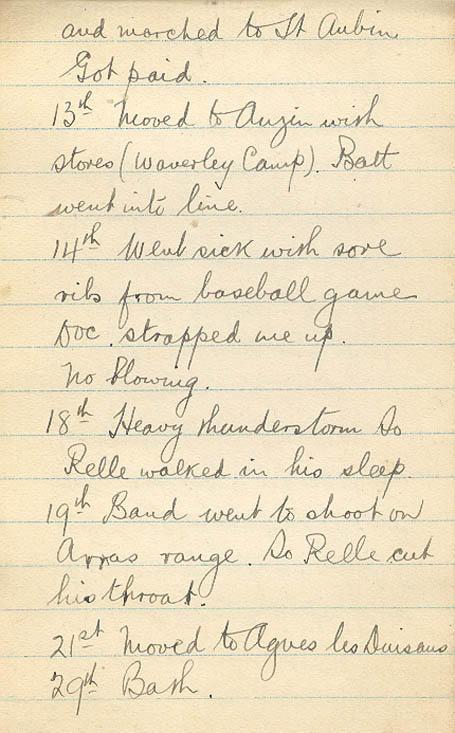 and marched to St Aubin.
Got paid.
13th Moved to Anzin with
stores (Waverley Camp). Batt
went into line.
14th Went sick with sore
ribs from baseball game
Doc. strapped me up.
No blowing.
18th Heavy thunderstorm So
Relle walked in his sleep.
19th Band went to shoot on
Arras range. So Relle cut
his throat.
21st Moved to Agnes les Duisans
29th Bath.